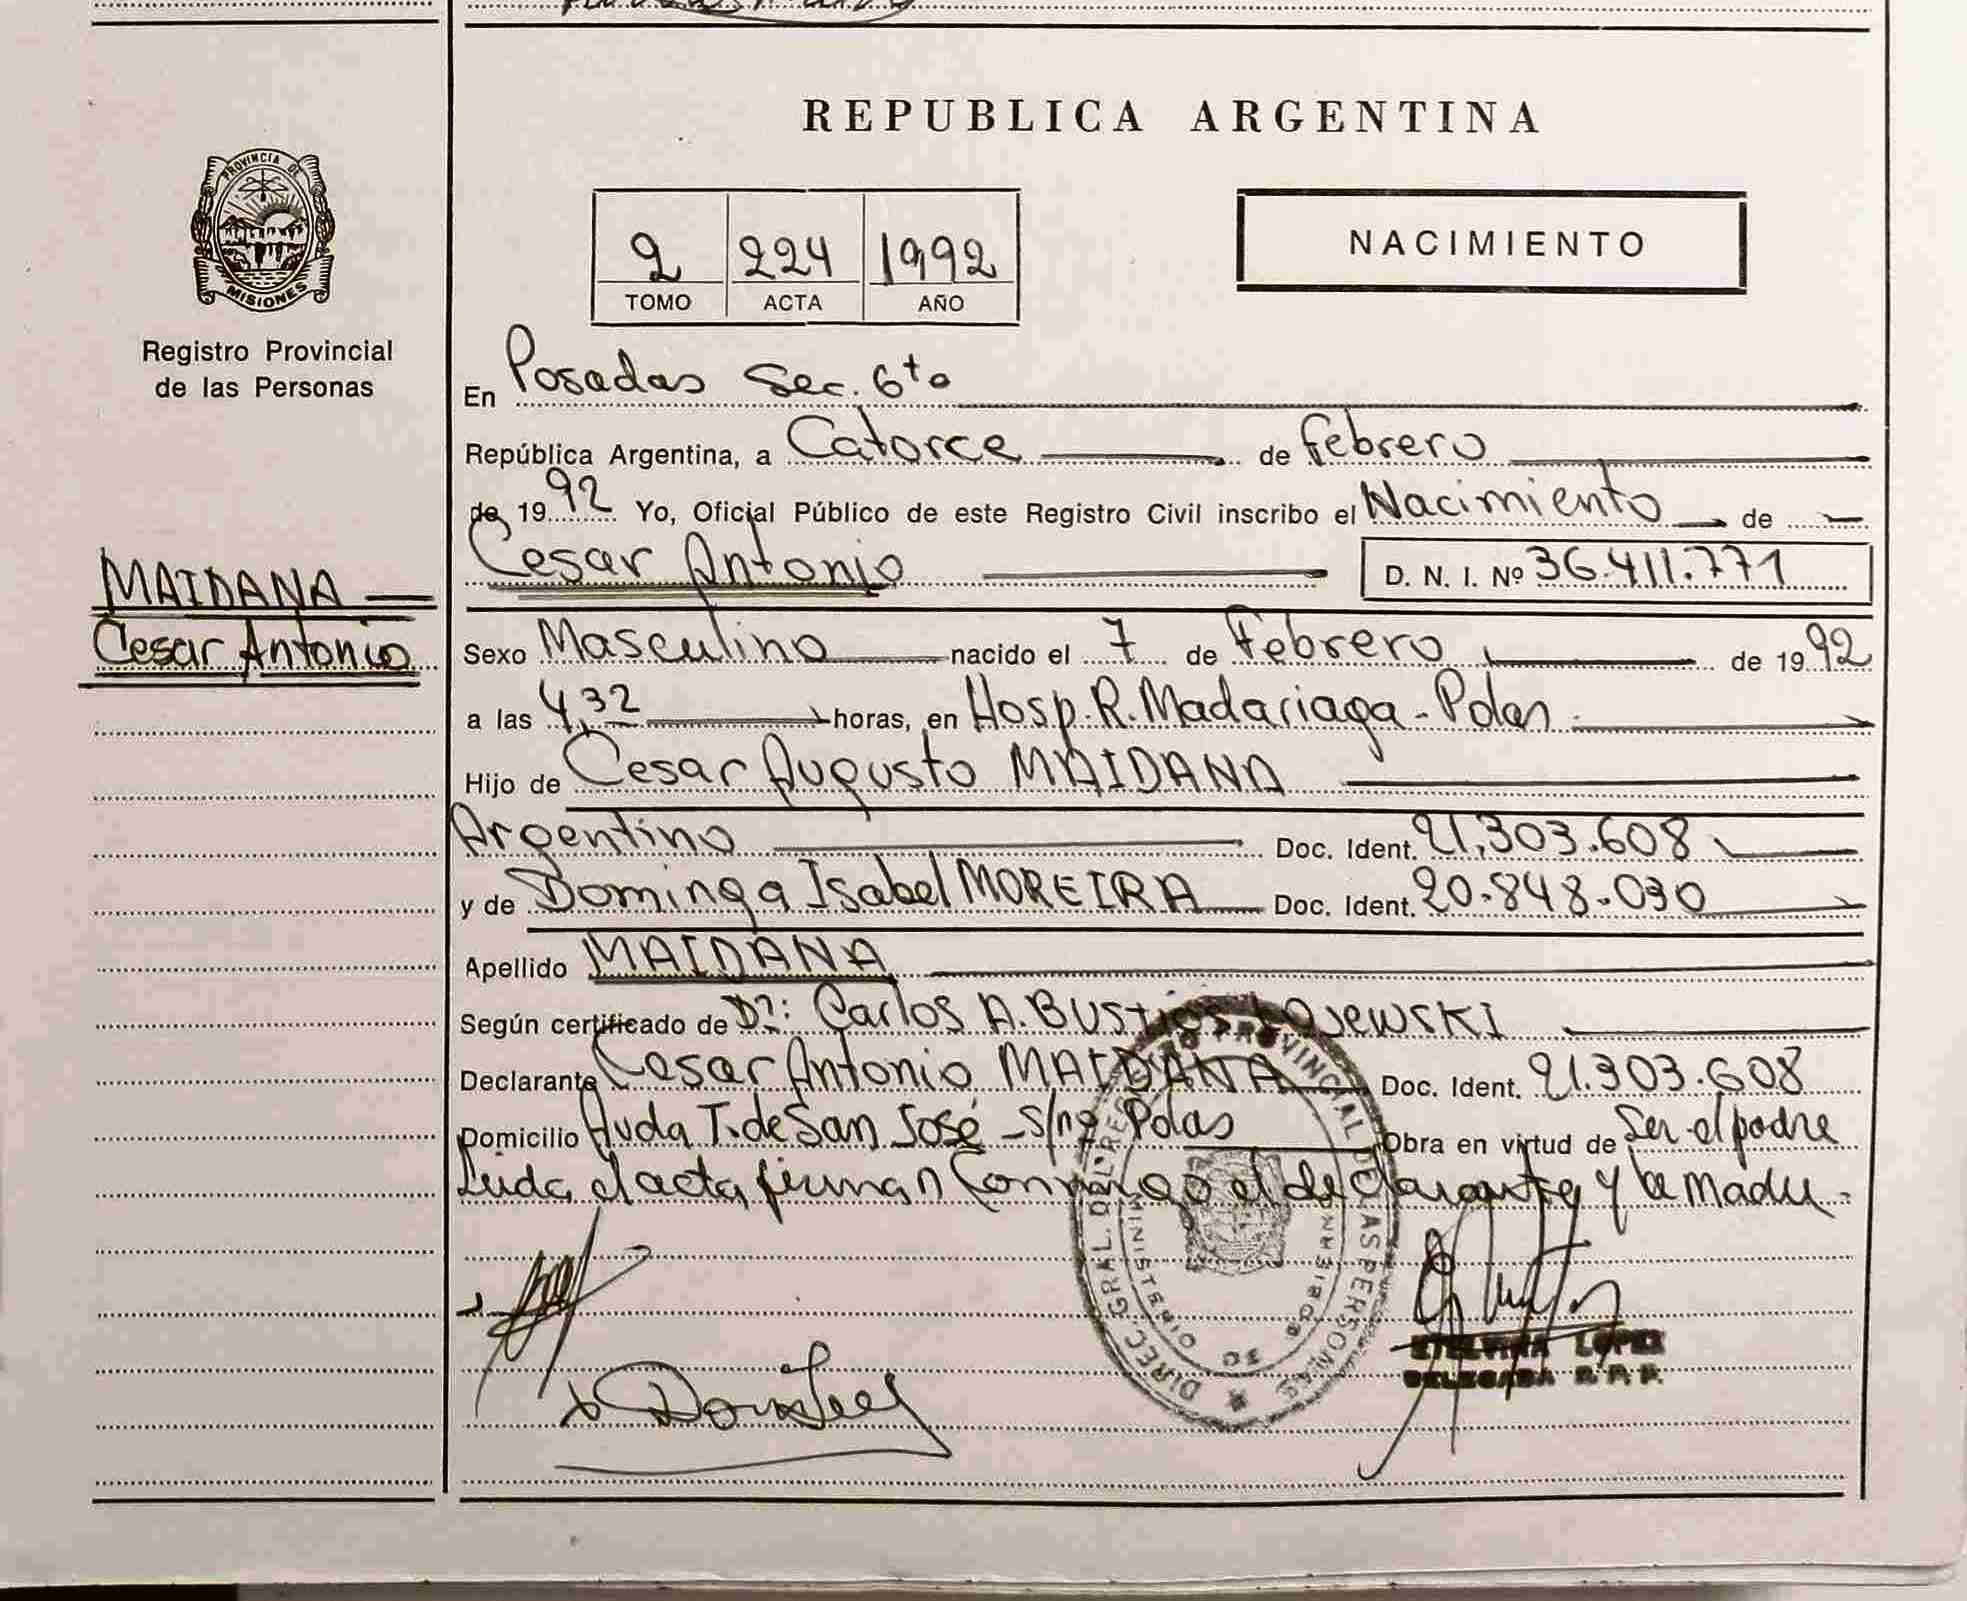 REPUBLICA ARGENTINA
PROVINCIA DE
MISIONES
Registro Provincial
de las Personas
2 224 1992
TOMO ACTA AÑO
NACIMIENTO
En Posadas Sec. 6ta
República Argentina, a Catorce de Febrero
de 1992 Yo, Oficial Público de este Registro Civil inscribo el Nacimiento de
Cesar Antonio D. N. I. Nº 36.411.771
MAIDANA
Cesar Antonio
Sexo Masculino nacido el 7 de Febrero de 1992
a las 4,32 horas, en Hosp. R. Madariaga - Pdas.
Hijo de Cesar Augusto MAIDANA
Argentino Doc. Ident. 21.303.608
y de Dominga Isabel MOREIRA Doc. Ident. 20.848.030
Apellido MAIDANA
Según certificado de Dr: Carlos A. Bustios
Declarante Cesar Antonio MAIDANA Doc. Ident. 21.303.608
Domicilio Avda T. de San José - S/nº Pdas Obra en virtud de Ser el padre
Leida el acta, firman Conmigo el declarante y la Madre.
DIREC. GRAL. DEL REG. PROVINCIAL DE LAS PERSONAS
MINISTERIO DE GOBIERNO
ETELVINA LOPEZ
DELEGADA R.P.P.